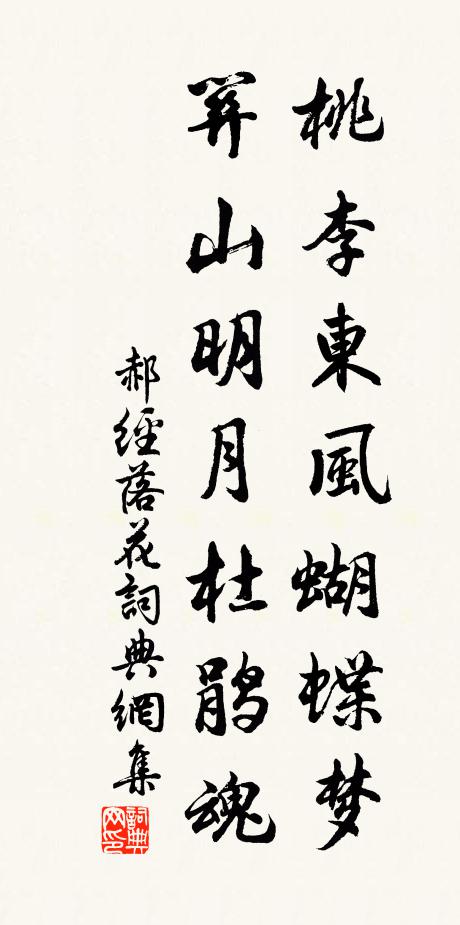 桃李東風蝴蝶梦
關山明月杜鵑魂
郝經落花詞典網集
詞典网印